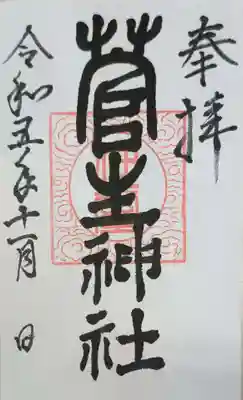 奉拝
菅生神社
令和五年十一月 日